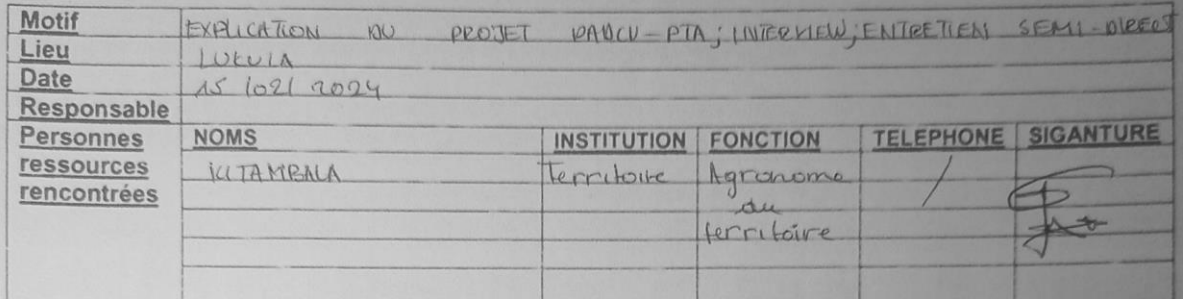 Motif EXPLICATION DU PROJET PADCV-PTA; INTERVIEW; ENTRETIEN SEMI-DIRECT
Lieu LUKULA
Date 15/02/2024
Responsable
Personnes ressources rencontrées
NOMS INSTITUTION FONCTION TELEPHONE SIGANTURE
Territoire Agronome / 
du
territoire